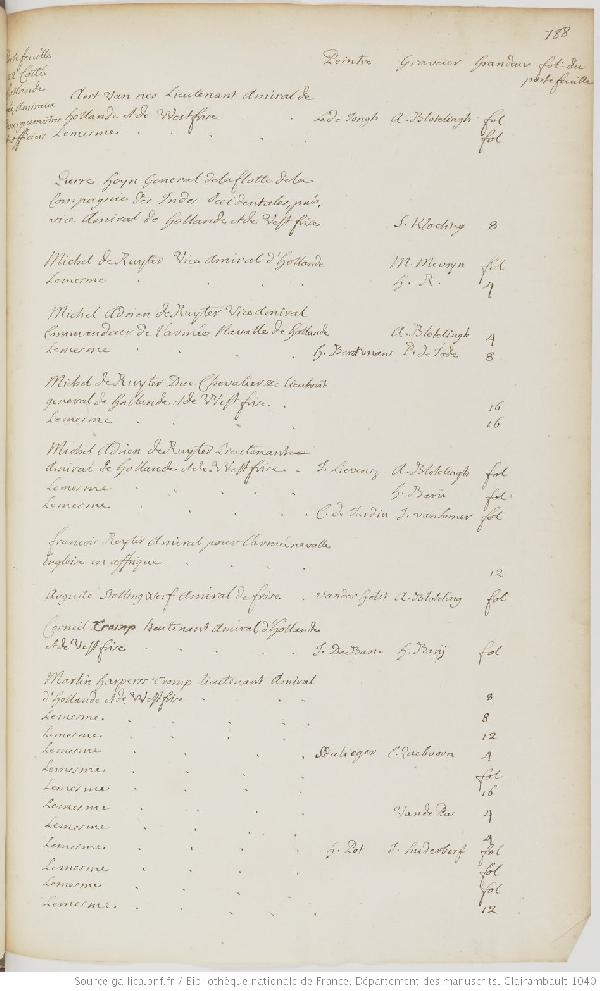 188
Peintre Graveur Grandeur fol. du
porte feuille
Hollande
Aert Van nes Lieutenant Amiral de
Hollande & de Westfrise . L. de Jongh A. Bloteling fol
Lemesme . . . . fol
Pierre Heyn General de la flotte de la
Compagnie des Indes Occidentales, puis
vice Amiral de Hollande & de Vestfrise S. Kloeting 8
Michel de Ruyter Vice Amiral d'Hollande M. Mevryn fol
Lemesme . . . . H. R. 4
Michel Adrien de Ruyter Vice Amiral
Commandeur de l'armée Navalle de Hollande A. Bloteling 4
Lemesme . . . H. Berkmans P. de Jode 8
Michel de Ruyter Duc Chevalier & lieutenant
general de Hollande & de Westfrise . 16
Lemesme . . . . 16
Michel Adrien de Ruyter Lieutenant
Amiral de Hollande & de Westfrise . J. Lievensz A. Bloteling fol
Lemesme . . . . H. Bary fol
Lemesme . . . . C. de Jardin J. van somer fol
francois Ruyter Amiral pour l'armée navalle
Angloise en affrique . . . . 12
Auguste Stelling Werf Amiral de frise . vander Helst A. Bloteling fol
Corneil Tromp lieutenant Amiral d'Hollande
& de Vestfrise . . . . J. De Baen H. Barij fol
Martin Harpers Tromp lieutenant Amiral
d'Hollande & de Westfrise . . . 8
Lemesme . . . . 8
Lemesme . . . . 12
Lemesme . . . . 4
Lemesme . . . . fol
Lemesme . . . . 16
Lemesme . . . . Van de Pas 4
Lemesme . . . . 4
Lemesme . . . . H. Pot J. Suderhoef fol
Lemesme . . . . fol
Lemesme . . . . fol
Lemesme . . . . 12
Source gallica.bnf.fr / Bibliothèque nationale de France. Département des manuscrits. Clairambault 1040